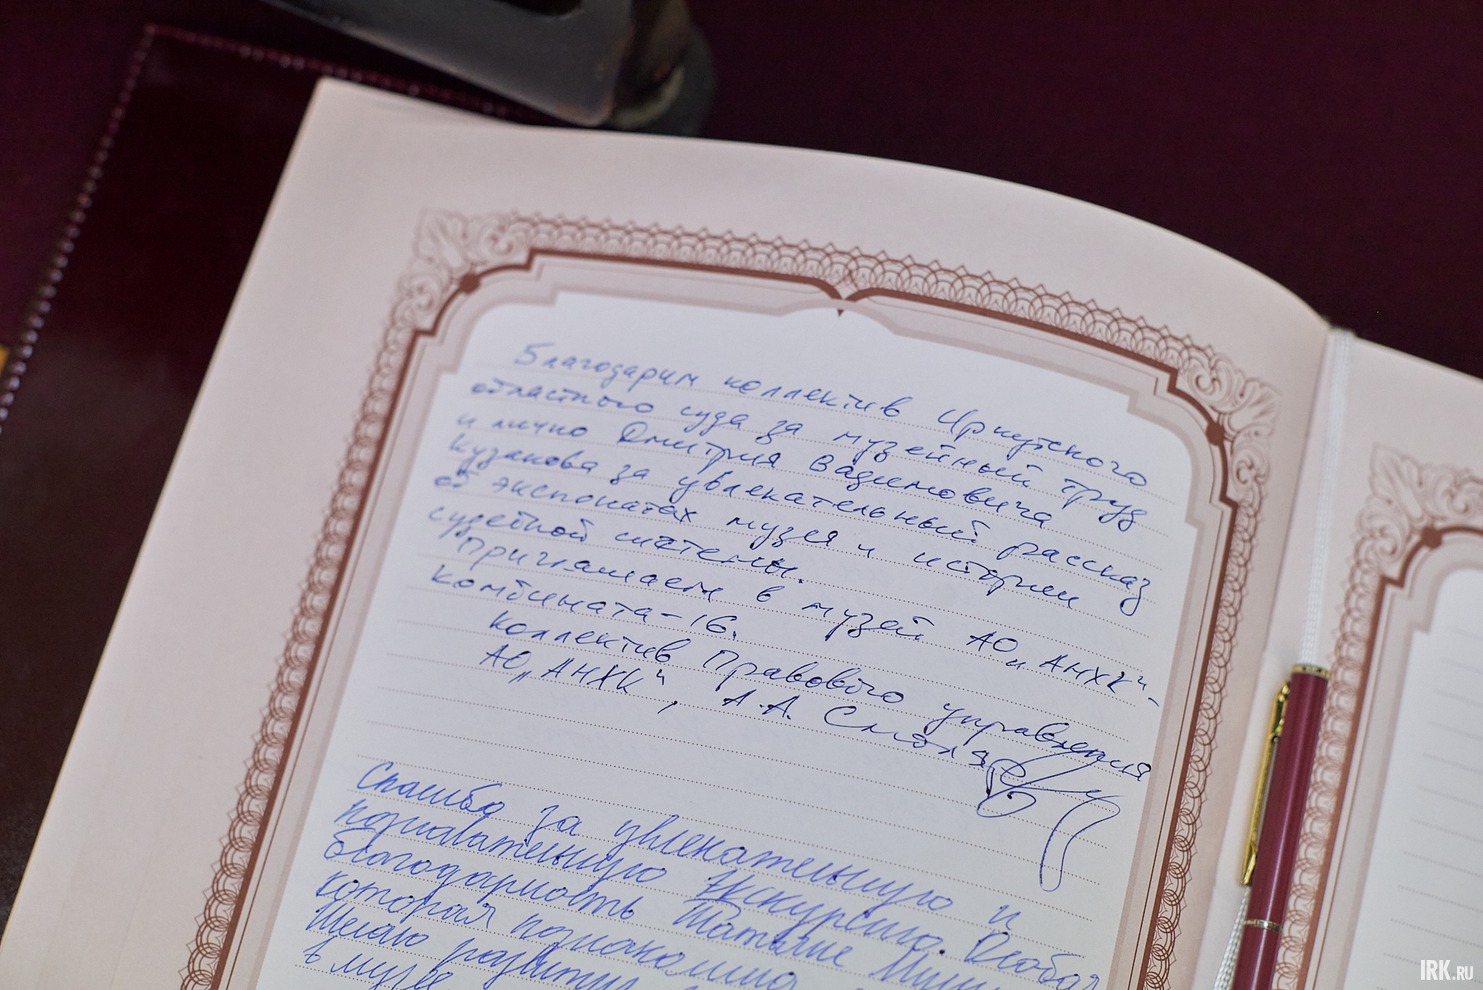 Благодарим коллектив Иркутского
областного суда за музейный труд
и лично Дмитрия Вадимовича
Кузакова за увлекательный рассказ
об экспонатах музея и истории
судебной системы.
Приглашаем в музей АО „АНХК“-
комбината-16.
Коллектив Правового управления
АО „АНХК“, А.А. Смоля
Спасибо за увлекательную и
познавательную экскурсию. Особая
благодарность Татьяне
которая познакомила
Желаю развития
в музее
IRK.RU